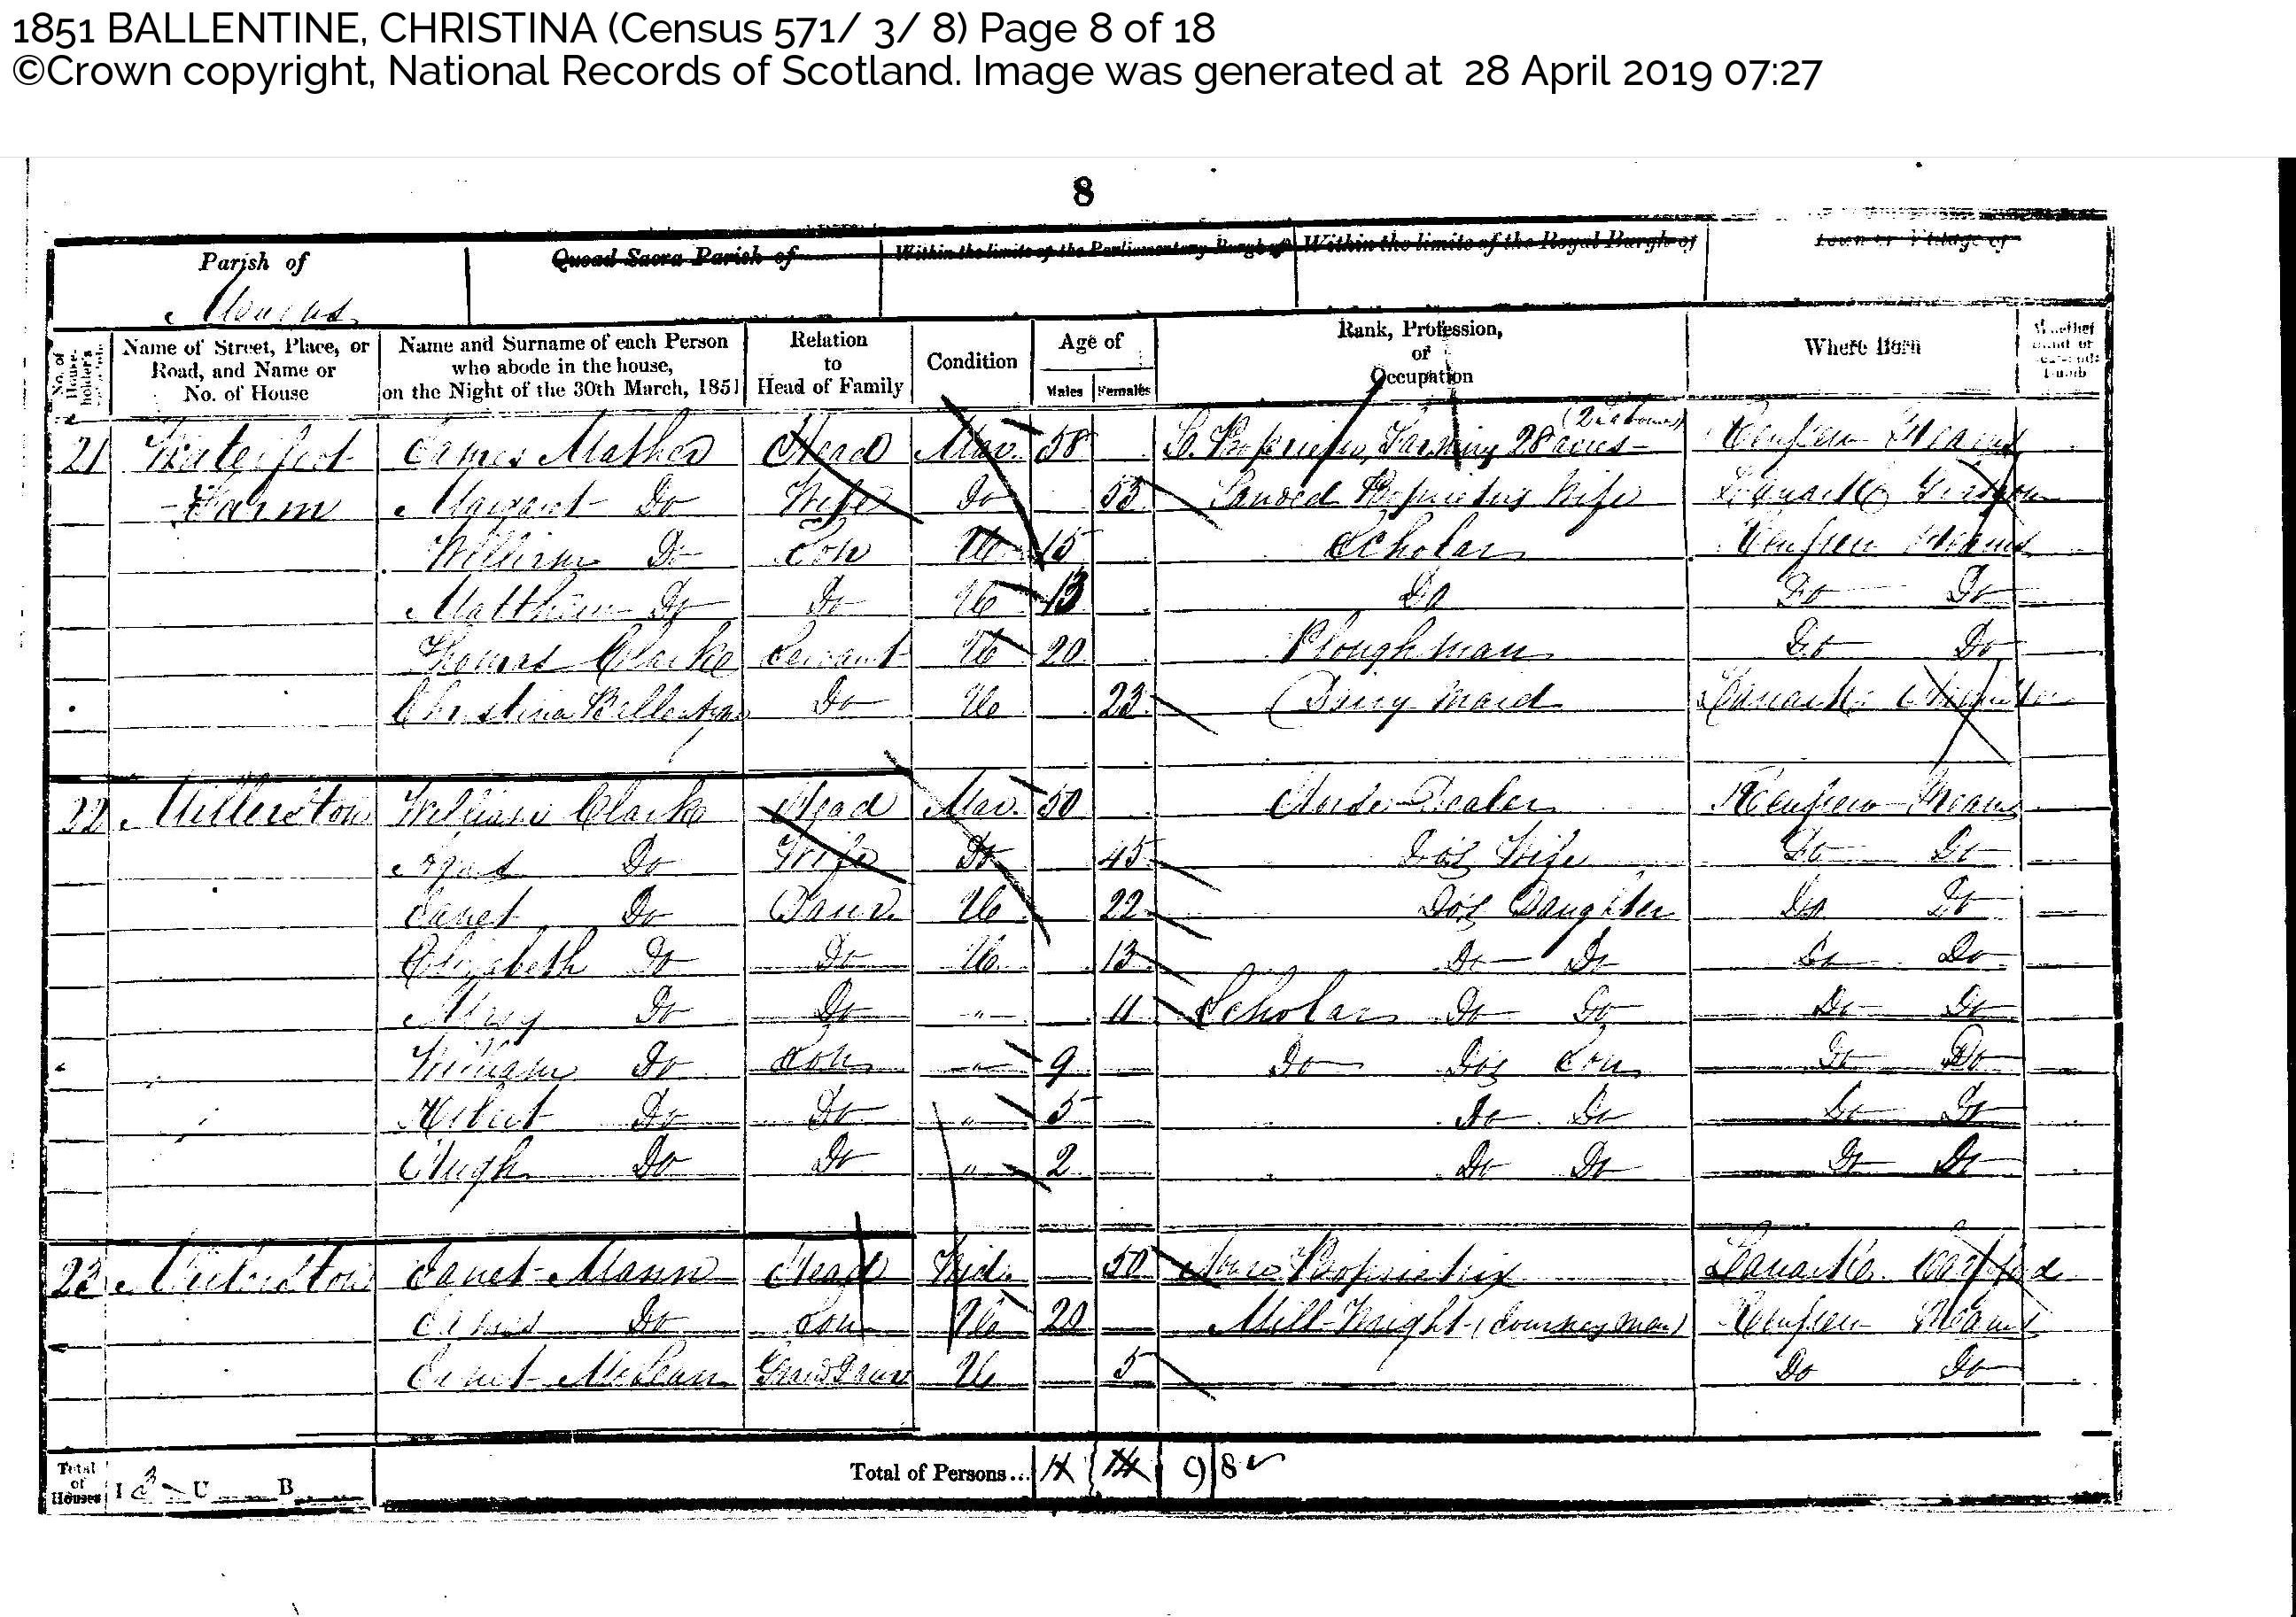 1851 BALLENTINE, CHRISTINA (Census 571/ 3/ 8) Page 8 of 18
©Crown copyright, National Records of Scotland. Image was generated at 28 April 2019 07:27
8
Parish of Quoad Sacra Parish of Within the limits of the Parliamentary Burgh of Within the limits of the Royal Burgh of Town or Village of
Mearns
No. of House-holder's Name of Street, Place, or Road, and Name or No. of House Name and Surname of each Person who abode in the house, on the Night of the 30th March, 1851 Relation to Head of Family Condition Age of Males Females Rank, Profession, or Occupation Where Born Whether Blind or Deaf and Dumb
21 Waterfoot James Mather Head Mar. 58 Farming 28 acres Renfrew Mearns
Farm Margaret Do Wife Do 53 Landed Proprietor's Wife Lanark Glasgow
William Do Son U 15 Scholar Renfrew Mearns
Matthew Do Do U 13 Do Do Do
Thomas Clarke Servant U 20 Ploughman Do Do
Christina Ballentine Do U 23 Dairy Maid Lanark
22 William Clarke Head Mar. 50 Horse Dealer Renfrew Mearns
Agnes Do Wife Do 45 Do's Wife Do Do
Janet Do Daur. U 22 Do's Daughter Do Do
Elizabeth Do Do U 13 Do Do Do Do
Mary Do Do " 11 Scholar Do Do Do Do
William Do Son " 9 Do Do's Son Do Do
Robert Do Do " 5 Do Do Do Do
Hugh Do Do " 2 Do Do Do Do
23 Janet Mann Head Wid. 50 House Proprietrix Lanark
James Do Son U 20 Mill-Wright (Journeyman) Renfrew Mearns
Janet McLean Grand Daur U 5 Do Do
Total of Houses I 3 U B Total of Persons... 9 8